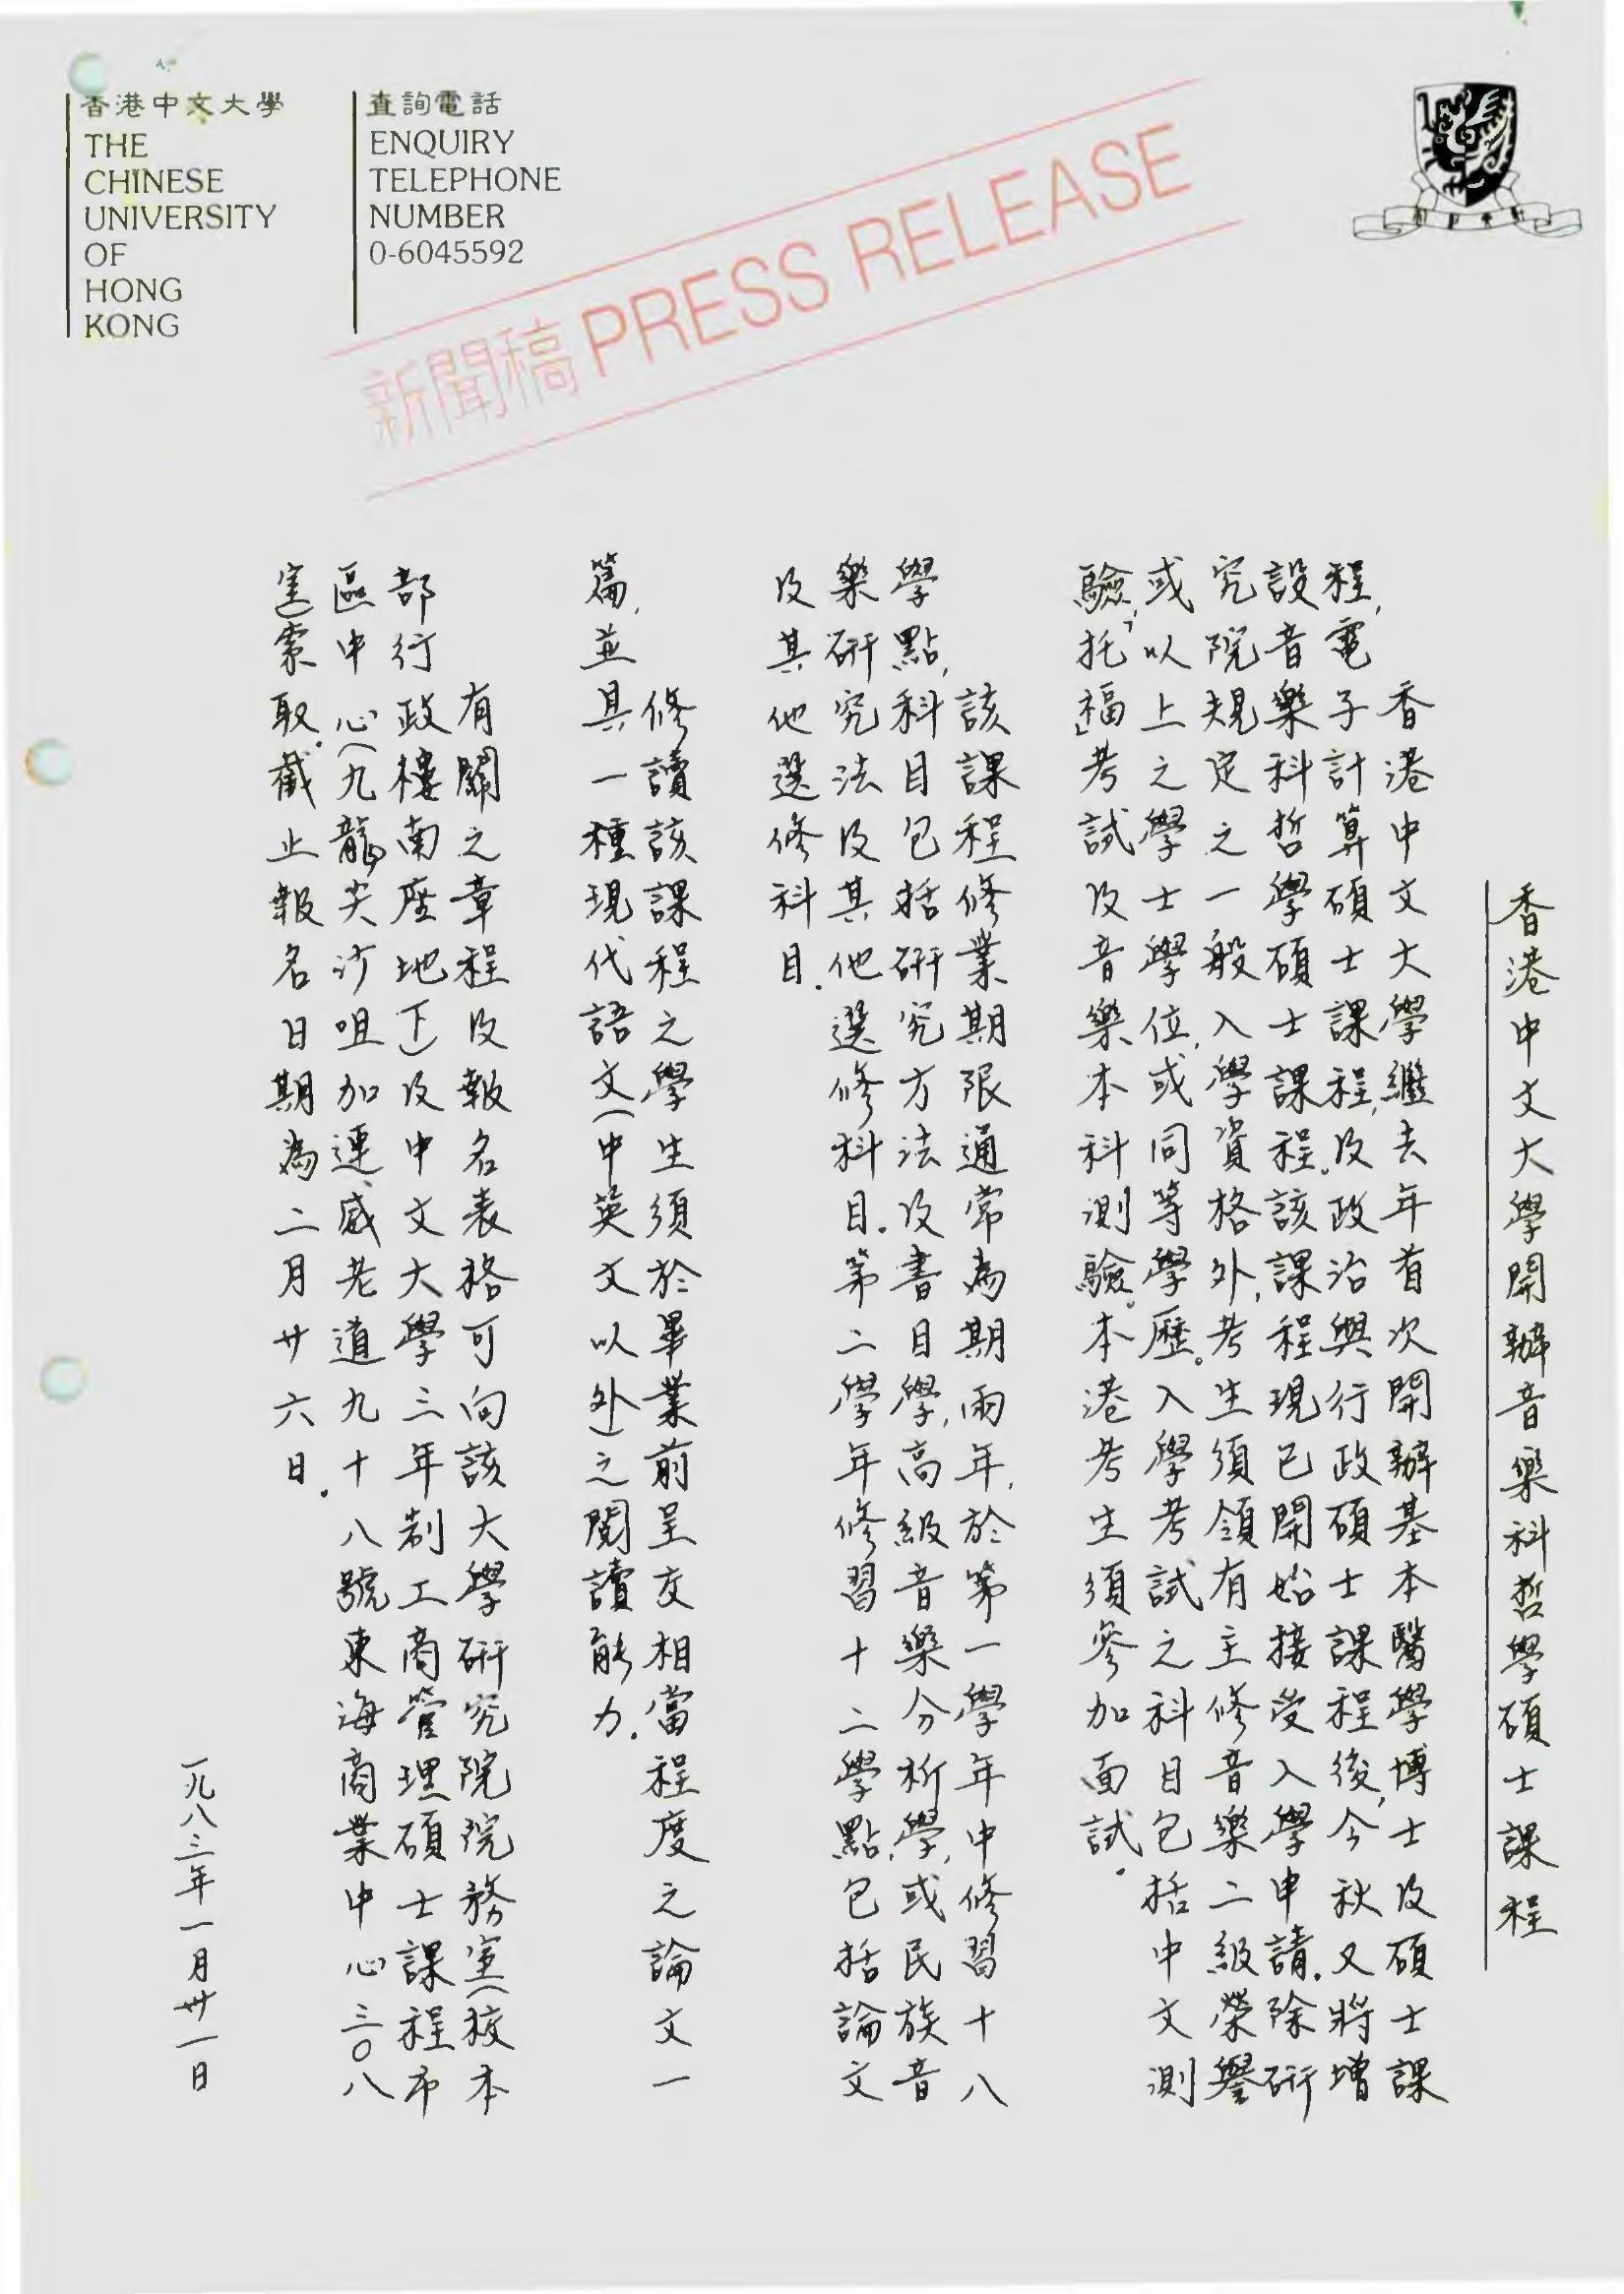 香港中文大學
THE
CHINESE
UNIVERSITY
OF
HONG
KONG
查詢電話
ENQUIRY
TELEPHONE
NUMBER
0-6045592
新聞稿 PRESS RELEASE
香港中文大學開辦音樂科哲學碩士課程
香港中文大學繼去年首次開辦基本醫學博士及碩士課
程,電子計算碩士課程,及政治與行政碩士課程後,今秋又將增
設音樂科哲學碩士課程。該課程現已開始接受入學申請。除研
究院規定之一般入學資格外,考生須領有主修音樂二級榮譽
或以上之學士學位,或同等學歷。入學考試之科目包括中文測
驗,「托福」考試及音樂本科測驗。本港考生須參加面試。
該課程修業期限通常為期兩年,於第一學年中修習十八
學點,科目包括研究方法及書目學,高級音樂分析學,或民族音
樂研究法及其他選修科目。第二學年修習十二學點,包括論文
及其他選修科目。
修讀該課程之學生須於畢業前呈交相當程度之論文一
篇,並具一種現代語文(中英文以外)之閱讀能力。
有關之章程及報名表格可向該大學研究院院務室(校本
部行政樓南座地下)及中文大學三年制工商管理碩士課程市
區中心(九龍尖沙咀加連威老道九十八號東海商業中心三〇八
室)索取。截止報名日期為二月廿六日。
一九八三年一月卅一日